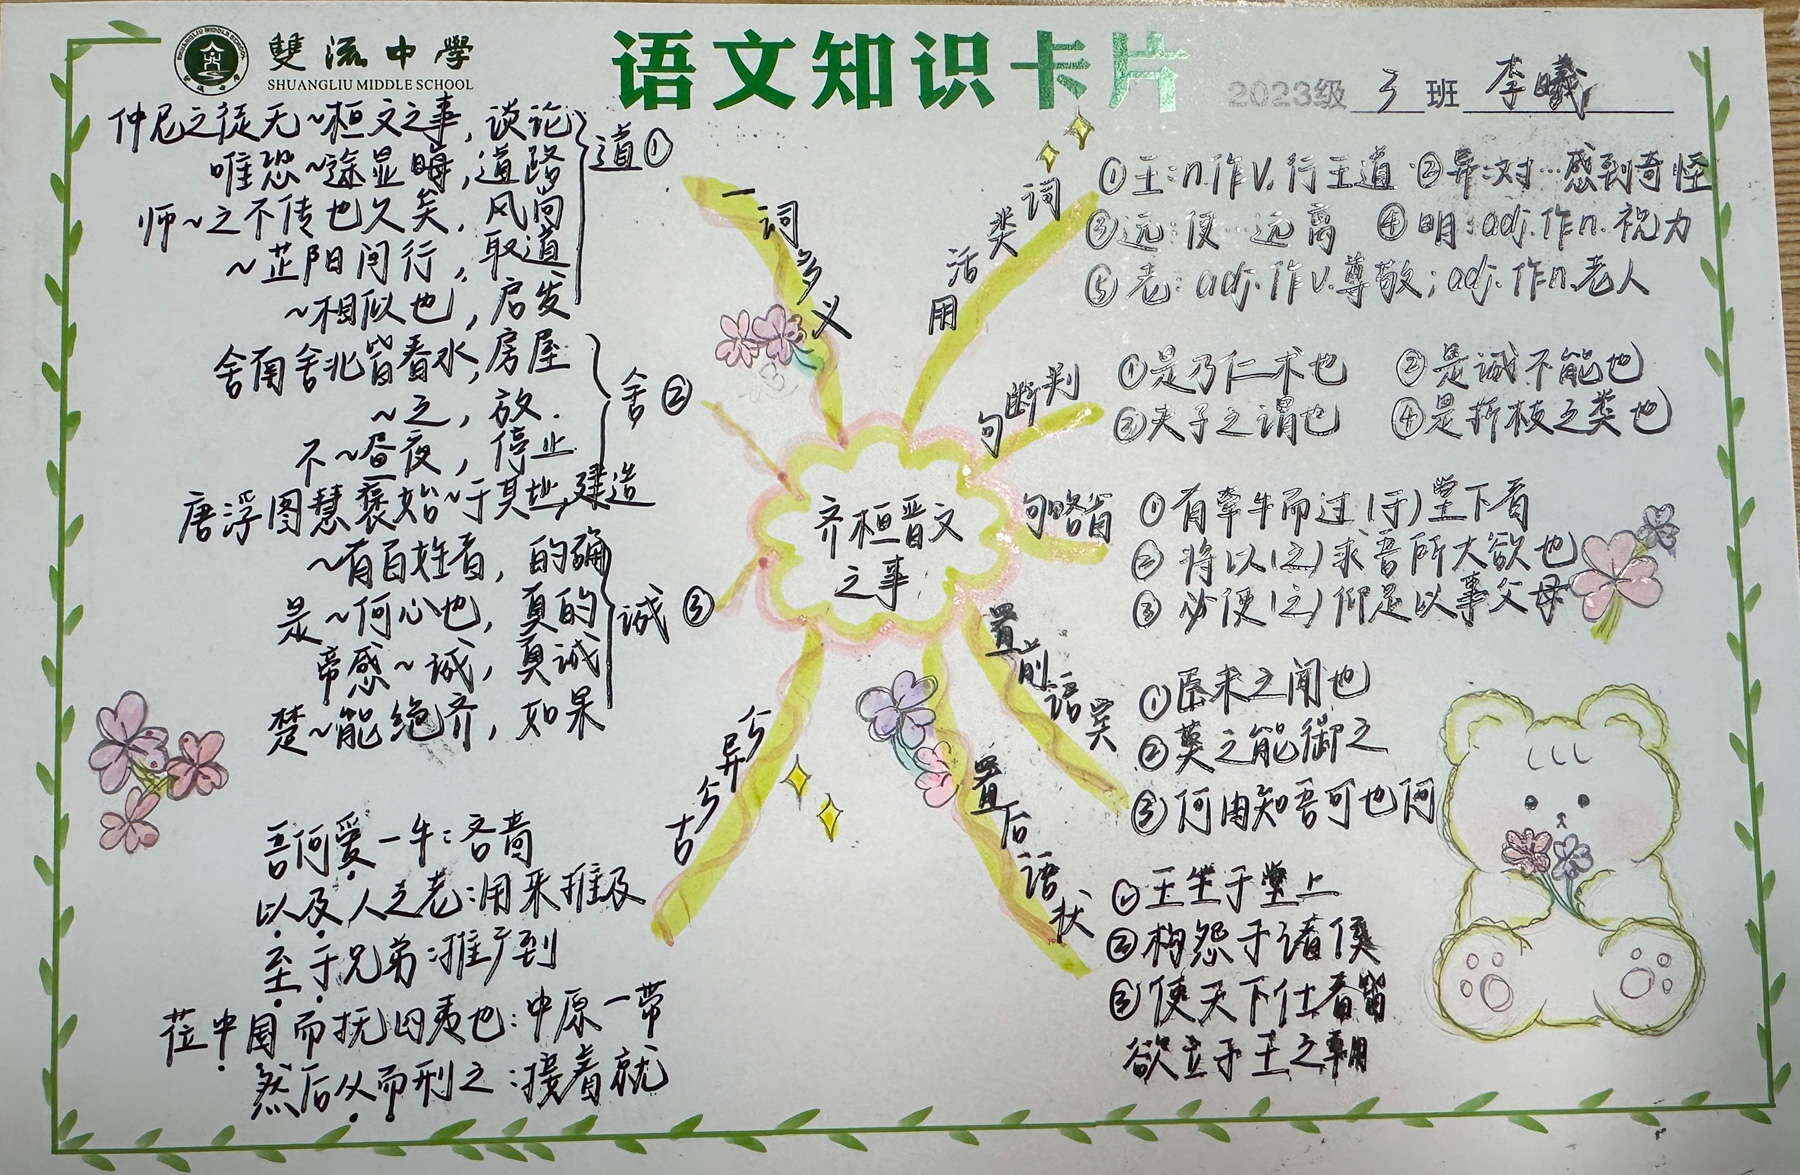 雙流中學
SHUANGLIU MIDDLE SCHOOL
语文知识卡片
2023级 3 班 李曦
仲尼之徒无~桓文之事，谈论
唯恐~途显晦，道路
师~之不传也久矣，风尚
~芷阳间行，取道
~相似也，启发
道①
舍南舍北皆春水，房屋
~之，放.
不~昼夜，停止
唐浮图慧褒始~于其址，建造
舍②
~有百姓者，的确
是~何心也，真的
帝感~诚，真诚
楚~能绝齐，如果
诚③
吾何爱一牛：吝啬
以及人之老：用来推及
至于兄弟：推广到
莅中国而抚四夷也：中原一带
然后从而刑之：接着就
一词多义
古今异今
齐桓晋文
之事
词类活用
①王：n.作v.行王道 ②异：对…感到奇怪
③远：使…远离 ④明：adj.作n.视力
⑤老：adj.作v.尊敬；adj.作n.老人
判断句
①是乃仁术也 ②是诚不能也
③夫子之谓也 ④是折枝之类也
省略句
①有牵牛而过(于)堂下者
②将以(之)求吾所大欲也
③必使(之)仰足以事父母
宾语前置
①臣未之闻也
②莫之能御之
③何由知吾可也何
状语后置
①王坐于堂上
②构怨于诸侯
③使天下仕者皆
欲立于王之朝